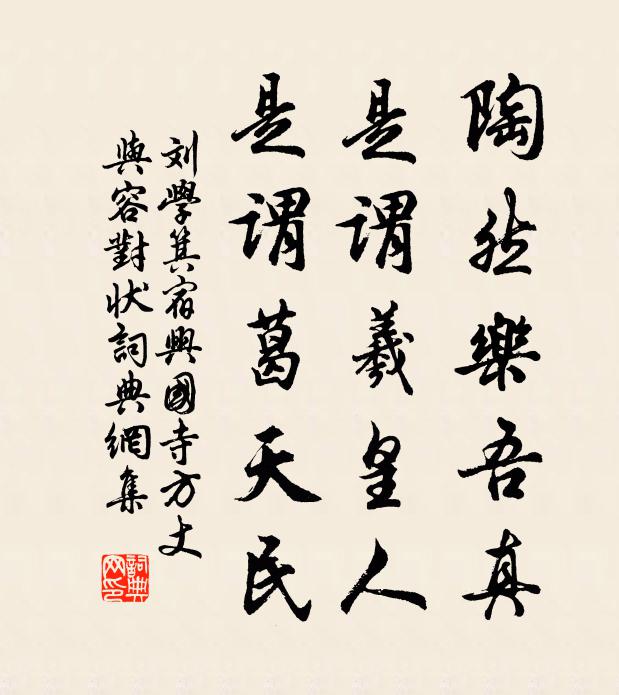 陶然樂吾真
是謂羲皇人
是謂葛天民
刘學箕宿興國寺方丈
與容對狀詞典網集
詞典网印